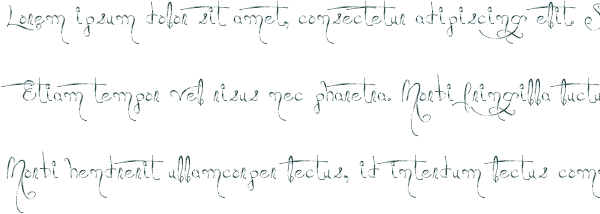 Lorem ipsum dolor sit amet, consectetur adipiscing elit. S
Etiam tempor vel risus nec pharetra. Morbi fringilla luctu
Morbi hendrerit ullamcorper lectus, id interdum lectus com